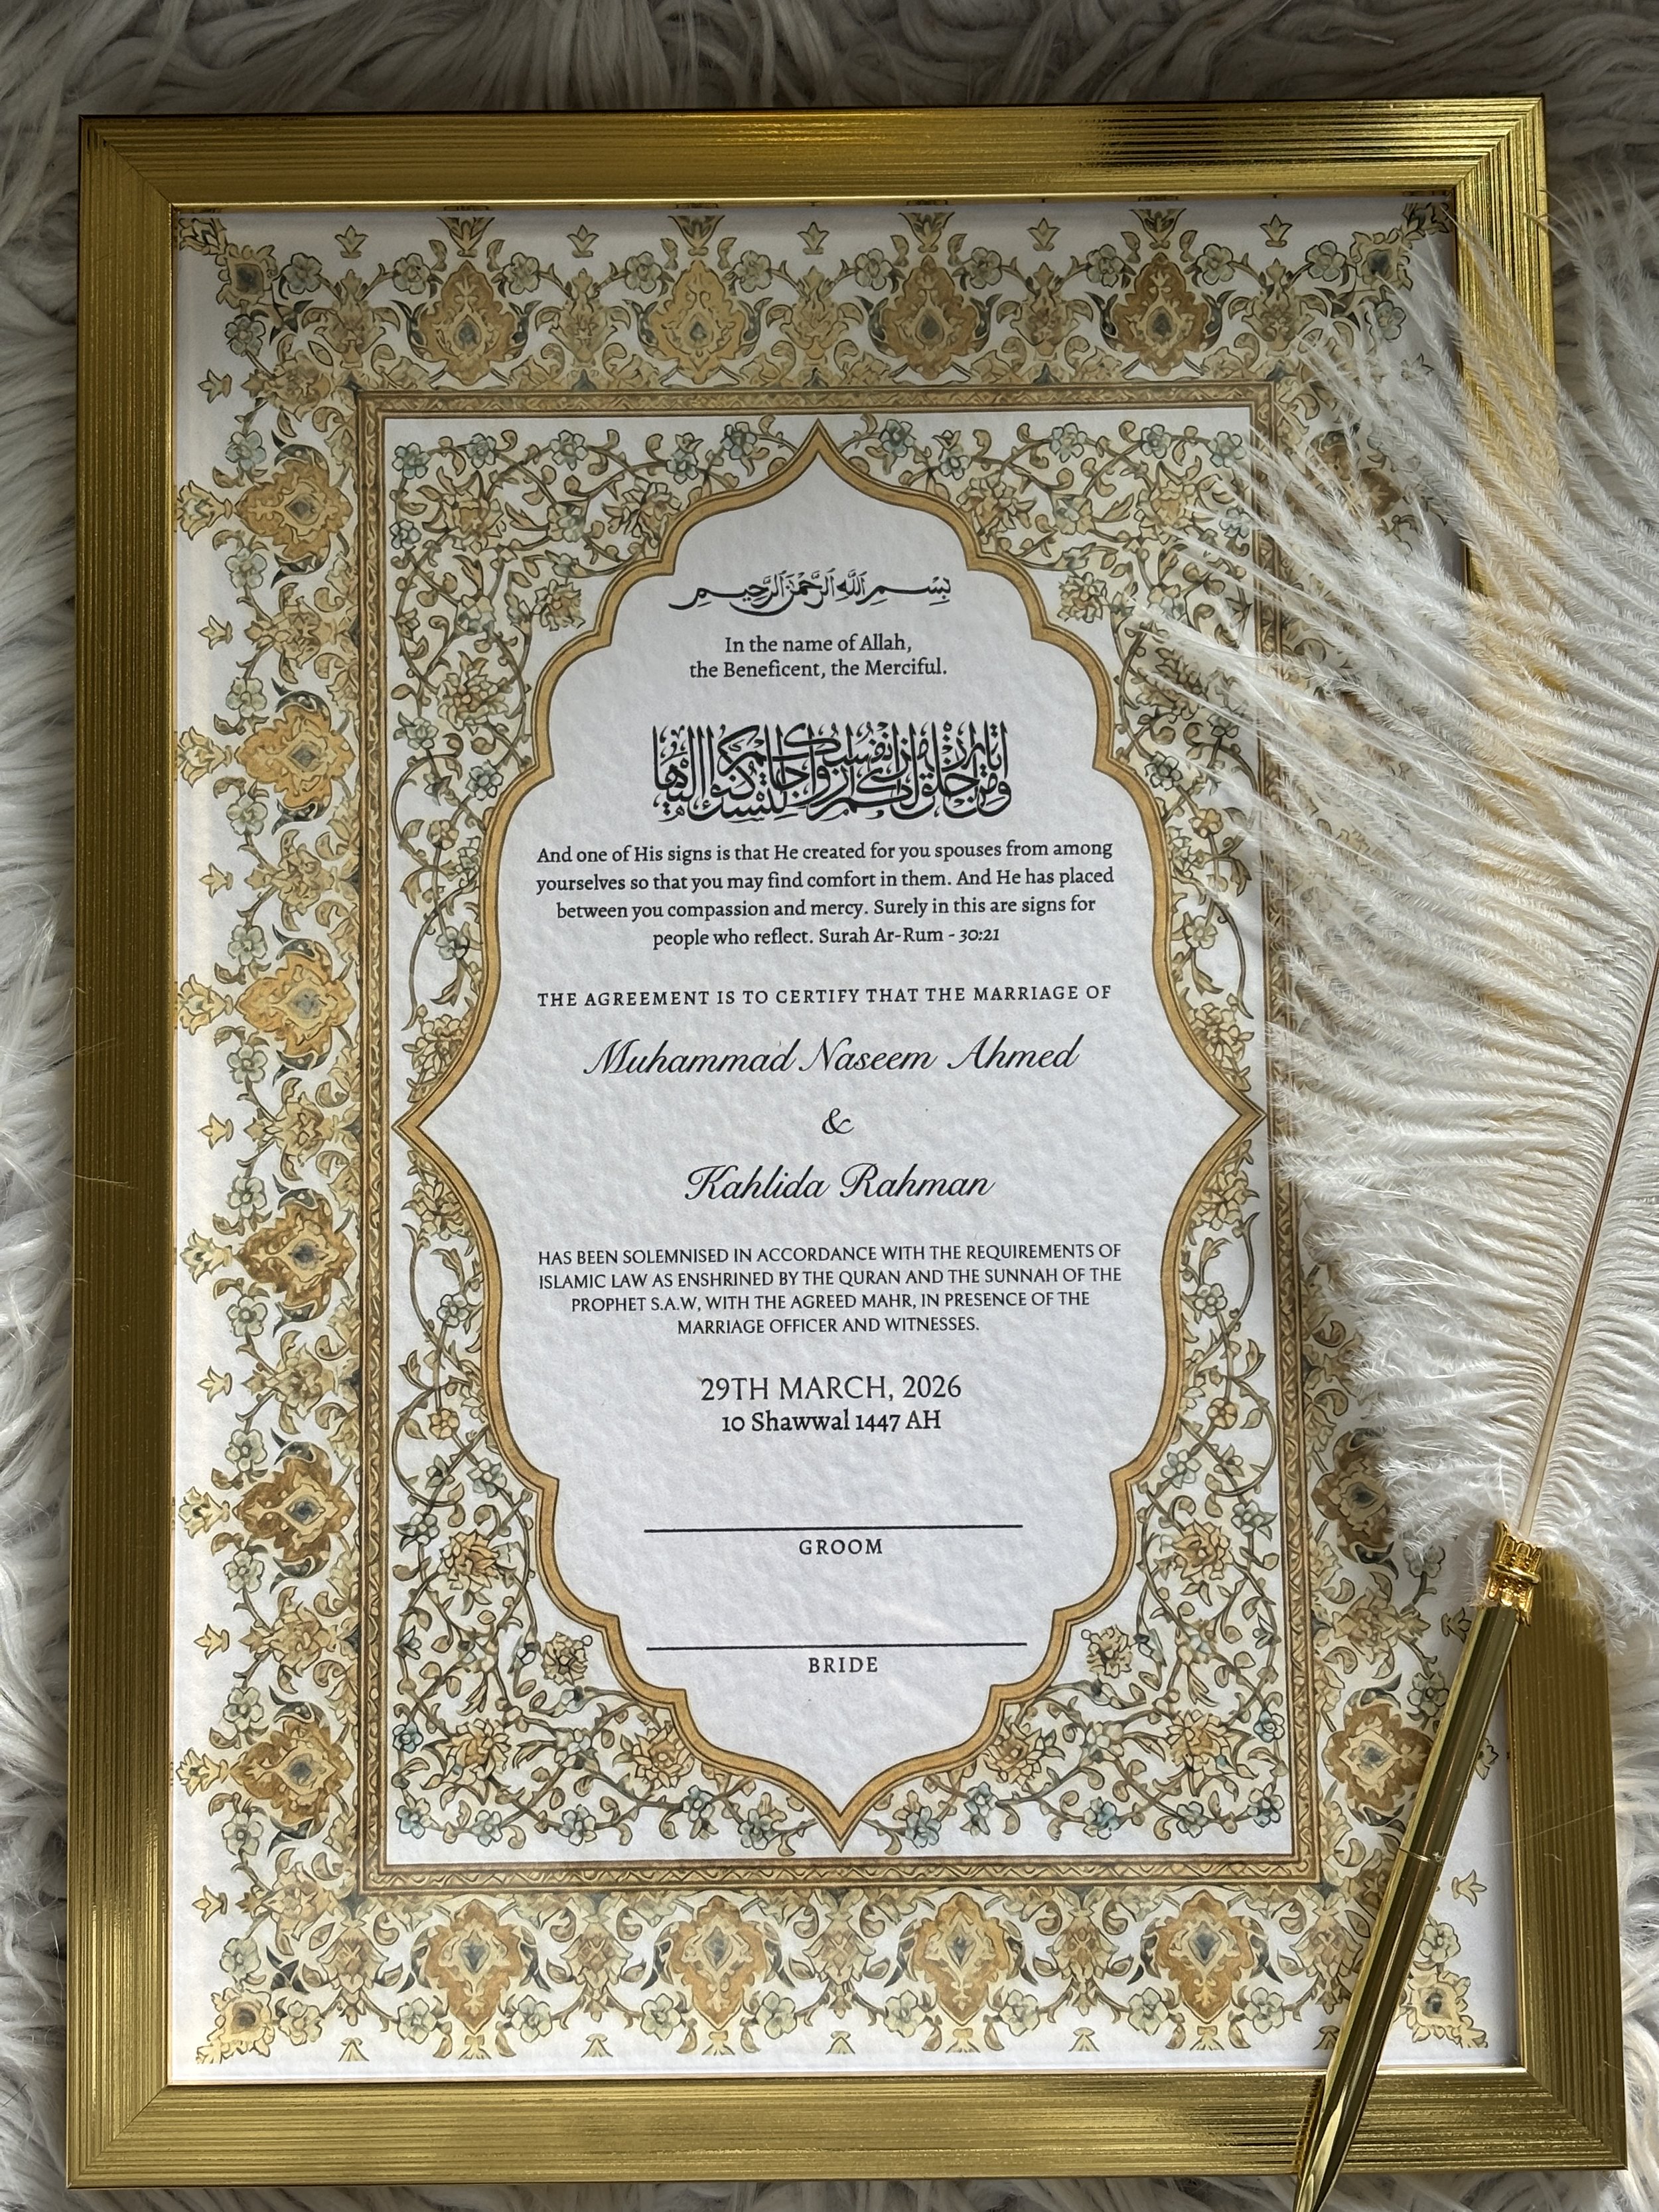 بِسْمِ اللَّهِ الرَّحْمَٰنِ الرَّحِيمِ
In the name of Allah,
the Beneficent, the Merciful.
ومن آياته أن خلق لكم من أنفسكم أزواجا لتسكنوا إليها
And one of His signs is that He created for you spouses from among
yourselves so that you may find comfort in them. And He has placed
between you compassion and mercy. Surely in this are signs for
people who reflect. Surah Ar-Rum - 30:21
THE AGREEMENT IS TO CERTIFY THAT THE MARRIAGE OF
Muhammad Naseem Ahmed
&
Kahlida Rahman
HAS BEEN SOLEMNISED IN ACCORDANCE WITH THE REQUIREMENTS OF
ISLAMIC LAW AS ENSHRINED BY THE QURAN AND THE SUNNAH OF THE
PROPHET S.A.W, WITH THE AGREED MAHR, IN PRESENCE OF THE
MARRIAGE OFFICER AND WITNESSES.
29TH MARCH, 2026
10 Shawwal 1447 AH
GROOM
BRIDE